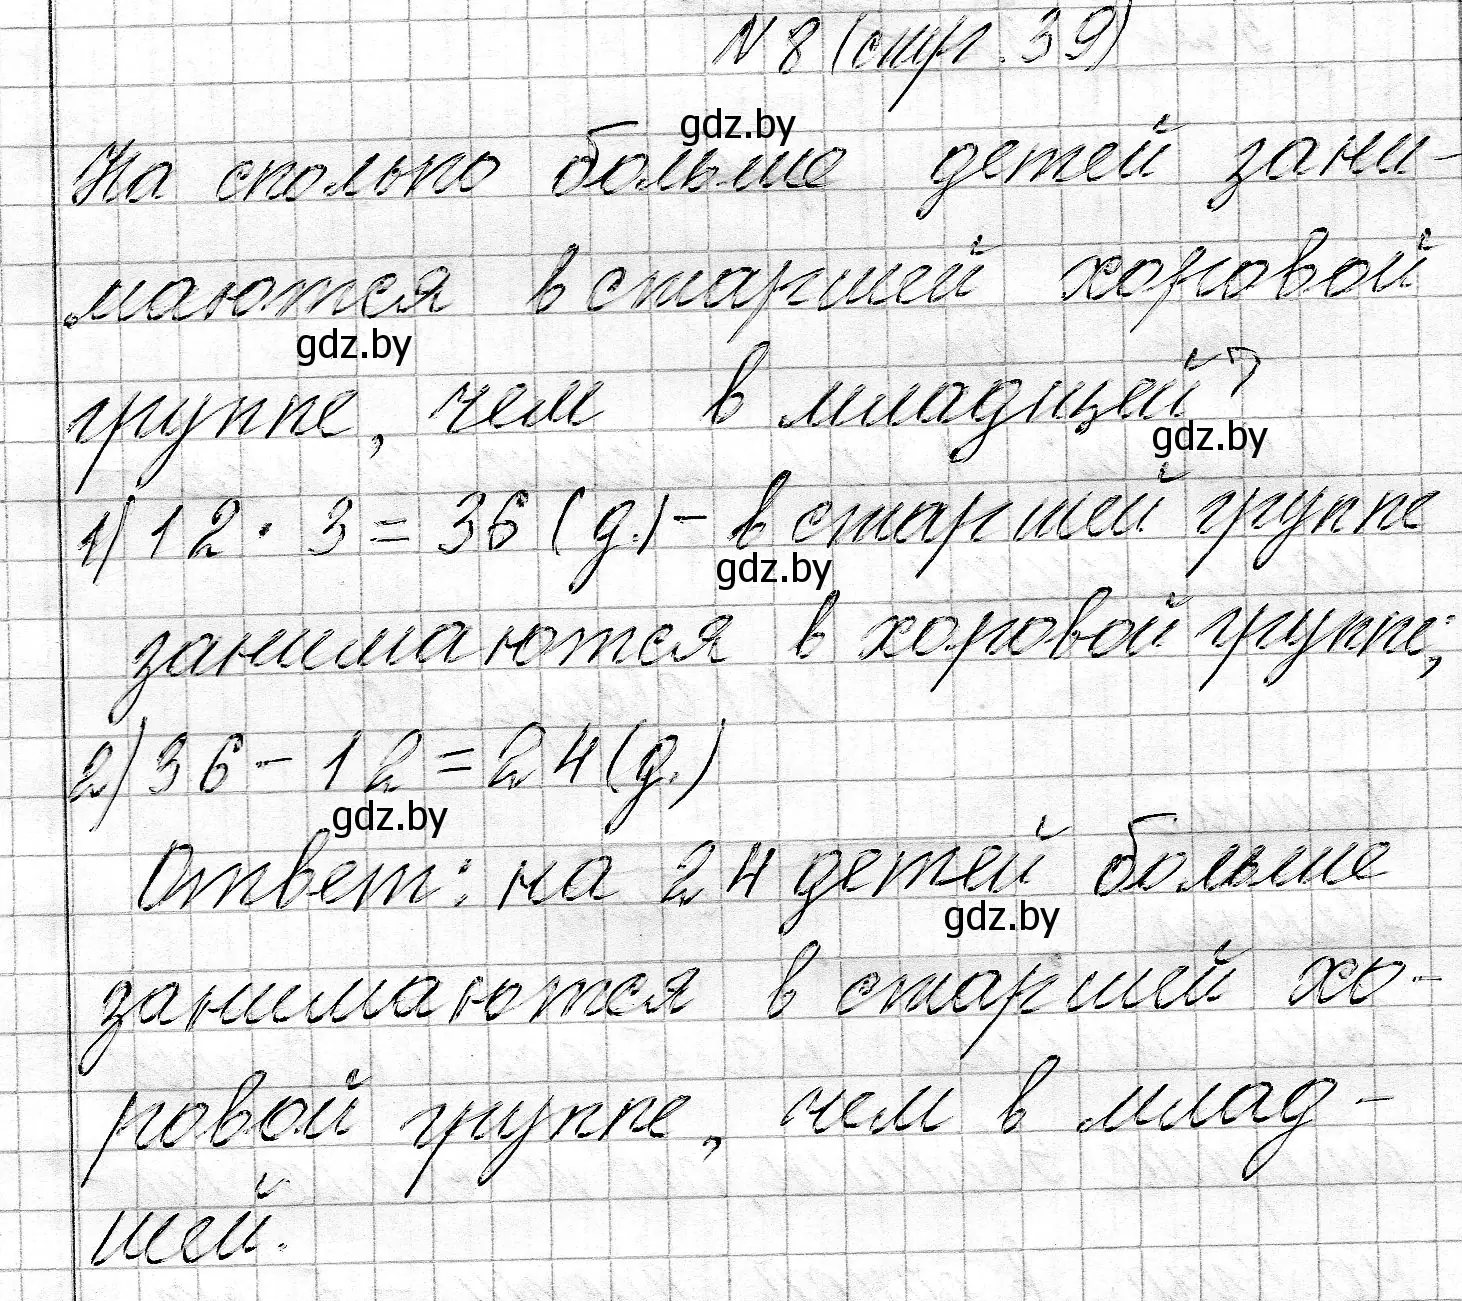 № 8 (стр. 39)
gdz.by
На сколько больше детей зани-
маются в старшей хоровой
gdz.by
группе, чем в младшей?
gdz.by
1) 12 · 3 = 36 (д.) - в старшей группе
gdz.by
занимаются в хоровой группе;
2) 36 - 12 = 24 (д.)
gdz.by
Ответ: на 24 детей больше
gdz.by
занимаются в старшей хо-
ровой группе, чем в млад-
шей.